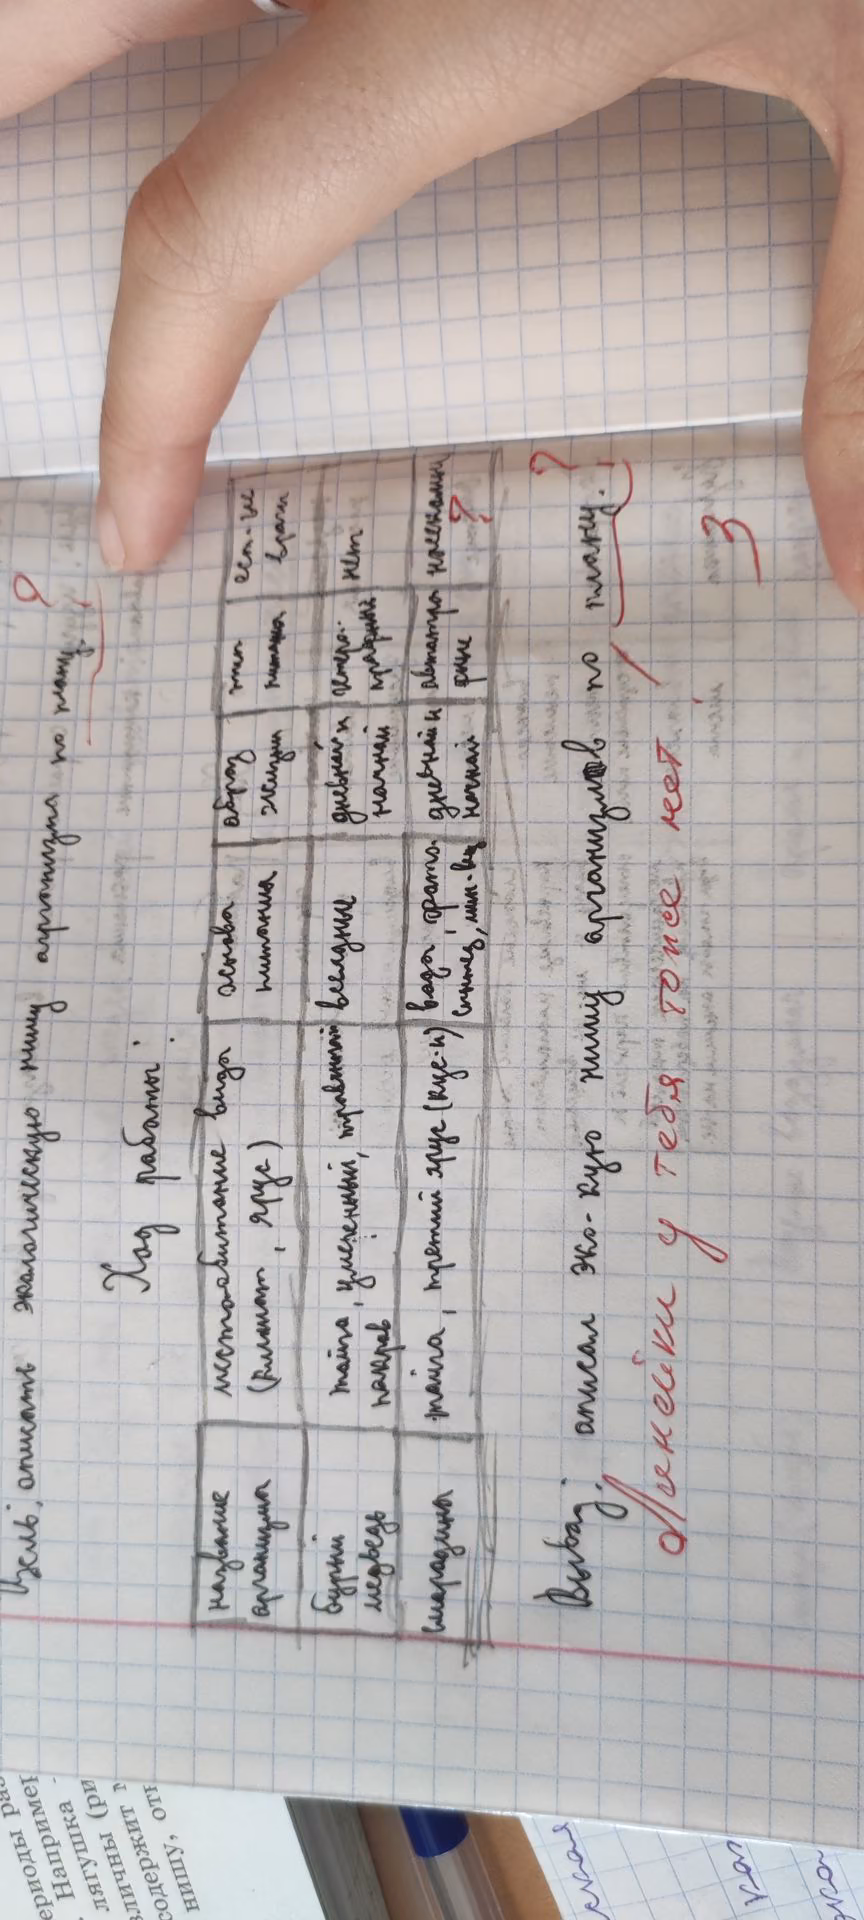 Цель: описать экологическую нишу организма по плану. ?
Ход работы:
название организма | местообитание вида (климат, ярус) | основа питания | образ жизни | тип питания | ест-ие враги
бурый медведь | тайга, умеренный, травяной покров | всеядные | дневной и ночной | гетеротрофный | нет
смородина | тайга, третий ярус (кус-и) | вода, фотосинтез, мин-ва | дневной и ночной | автотрофные | насекомые ?
Вывод: описал эко-кую нишу организмов по плану. ?
Линейки у тебя тоже нет! 3
ериоды раз
Например
лягушка -
зличны (ри
содержит м
нишу, отн